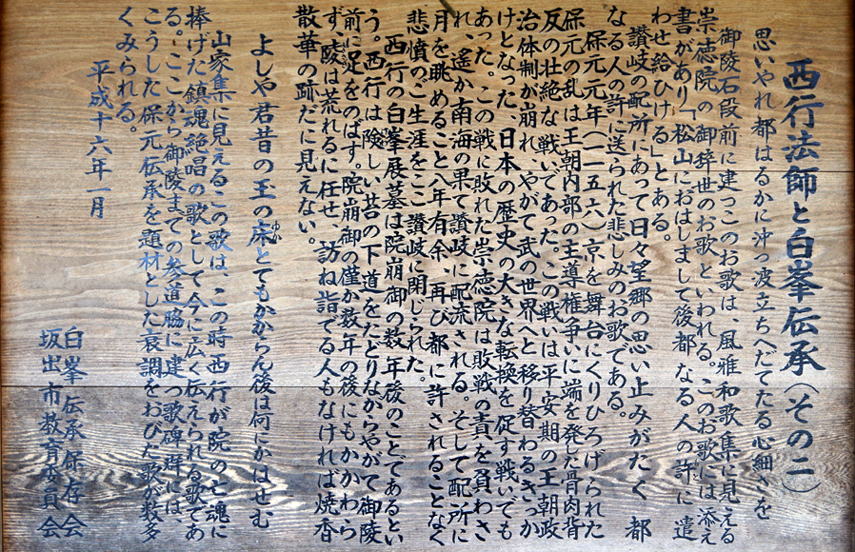 西行法師と白峯伝承(その二)
思いやれ都はるかに沖つ波立ちへだてたる心細さを
御陵石段前に建つこのお歌は、風雅和歌集に見える
崇徳院の御辞世のお歌といわれる。このお歌には、添え
書があり「松山におはしまして後都なる人の許に遣
わせ給ひける」とある。
讃岐の配所にあって日々望郷の思い止みがたく都
なる人の許に送られた悲しみのお歌である。
保元元年(一一五六)京を舞台にくりひろげられた
保元の乱は王朝内部の主導権争いに端を発した骨肉背
反の壮絶な戦いであった。この戦いは平安期の王朝政
治体制が崩れ、やがて武の世界へと移り替わるきっか
けとなった、日本の歴史の大きな転換を促す戦いでも
あった。この戦に敗れた崇徳院は敗戦の責を負わさ
れ、遥か南海の果て讃岐に配流される。そして配所に
月を眺めること八年有余、再び都に許されることなく
悲憤のご生涯をここ讃岐に閉じられた。
西行の白峯展墓は院崩御の数年後のことであるとい
う。西行は険しい苔の下道をたどりながらやがて御陵
前に足をのばす。院崩御の僅か数年の後にもかかわら
ず、陵は荒れるに任せ、訪ね詣でる人もなければ焼香
散華の跡だに見えない。
よしや君昔の玉の床とてもかからん後は何にかはせむ
ゆか
山家集に見えるこの歌は、この時西行が院の七魂に
捧げた鎮魂絶唱の歌として今に広く伝えられる歌であ
る。ここから御陵までの参道脇に建つ歌碑群には、
こうした保元伝承を題材とした哀調をおびた歌が数多
くみられる。
平成十六年一月
白峯伝承保存会
坂出市教育委員会